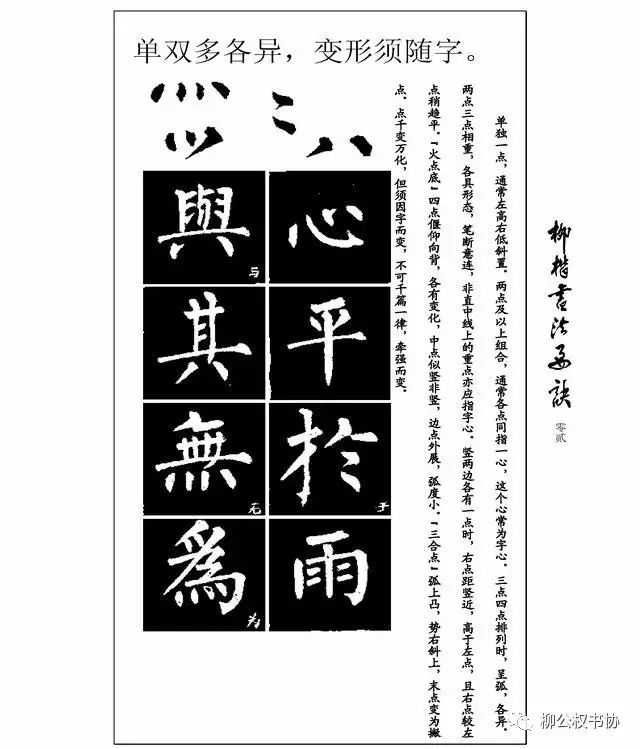 单双多各异，变形须随字。
柳楷书法要诀
零贰
单独一点，通常左高右低斜置。两点及以上组合，通常各点同指一心，这个心常为字心。三点四点排列时，呈弧，各异。
两点三点相重，各具形态，笔断意连，非直中线上的重点亦应指字心。竖两边各有一点时，右点距竖近，高于左点，且右点较左
点稍趋平。“火点底”四点偃仰向背，各有变化，中点似竖非竖，边点外展，弧度小。“三合点”弧上凸，势右斜上，末点变为撇
点。点千变万化，但须因字而变，不可千篇一律，牵强而变。
心
平
於
于
雨
與
与
其
無
无
為
为
柳公权书协